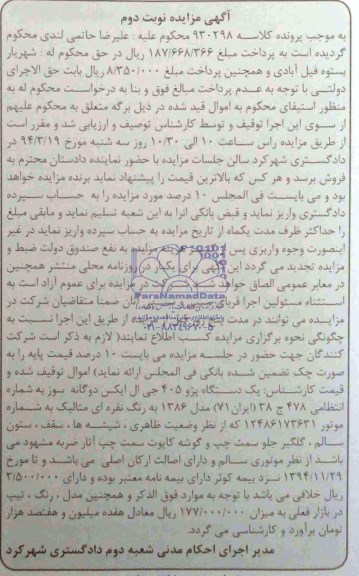 آگهی مزایده نوبت دوم
به موجب پرونده کلاسه ۹۳۰۲۹۸ محکوم علیه : علیرضا حاتمی لندی محکوم
گردیده است به پرداخت مبلغ ۱۸۷/۶۶۸/۳۶۶ ریال در حق محکوم له : شهریار
بستوه فیل آبادی و همچنین پرداخت مبلغ ۸/۳۵۰/۰۰۰ ریال بابت حق الاجرای
دولتی با توجه به عدم پرداخت مبالغ فوق و بنا به درخواست محکوم له به
منظور استیفای محکوم به اموال قید شده در ذیل برگه متعلق به محکوم علیهم
از سوی این اجرا توقیف و توسط کارشناس توصیف و ارزیابی شد و مقرر است
از طریق مزایده راس ساعت ۱۰ الی ۱۰/۳۰ روز سه شنبه مورخ ۹۴/۳/۱۹ در
دادگستری شهرکرد سالن جلسات مزایده با حضور نماینده دادستان محترم به
فروش برسد و هر کس که بالاترین قیمت را پیشنهاد نماید برنده مزایده خواهد
بود و می بایست فی المجلس ۱۰ درصد مورد مزایده را به حساب سپرده
دادگستری واریز نماید و قبض بانکی آنرا به این شعبه تسلیم نماید و مابقی مبلغ
را حداکثر ظرف مدت یکماه از تاریخ مزایده به حساب سپرده واریز نماید در غیر
اینصورت وجوه واریزی پس از کسر هزینه مزایده به نفع صندوق دولت ضبط و
مزایده تجدید می گردد این آگهی برای یکبار در روزنامه محلی منتشر همچنین
در معابر عمومی الصاق خواهد شد در مزایده برای عموم آزاد است به
استثناء مسئولین اجرا ضمنا متقاضیان شرکت در
مزایده می توانند در مدت مزایده از طریق این اجرا نسبت به
چگونگی نحوه برگزاری مزایده کسب اطلاع نمایند( لازم به ذکر است شرکت
کنندگان جهت حضور در جلسه مزایده می بایست ۱۰ درصد قیمت پایه را به
صورت چک تضمین شده بانکی فی المجلس ارائه نمایند) اموال توقیف شده و
قیمت کارشناس: یک دستگاه پژو ۴۰۵ جی ال ایکس دوگانه سوز به شماره
انتظامی ۴۷۸ ج ۳۸ (ایران ۷۱) مدل ۱۳۸۶ به رنگ نقره ای متالیک به شماره
موتور ۱۲۴۸۶۱۷۳۶۳۱ که از نظر وضعیت ظاهری ، شیشه ها ، سقف ، ستون
سالم ، گلگیر جلو سمت چپ و گوشه کاپوت سمت چپ آثار ضربه مشهود می
باشد از نظر موتوری سالم و دارای اصالت ارکان اصلی می باشد و تا مورخ
۱۳۹۴/۱۱/۲۹ نزد بیمه کوثر دارای بیمه نامه معتبر بوده و دارای ۲/۵۰۰/۰۰۰
ریال خلافی می باشد با توجه به موارد فوق الذکر و همچنین مدل ، رنگ ، تیپ
در بازار فعلی به میزان ۱۷۷/۰۰۰/۰۰۰ ریال معادل هفده میلیون و هفتصد هزار
تومان برآورد و کارشناسی می گردد.
مدیر اجرای احکام مدنی شعبه دوم دادگستری شهرکرد
ParaNamadData